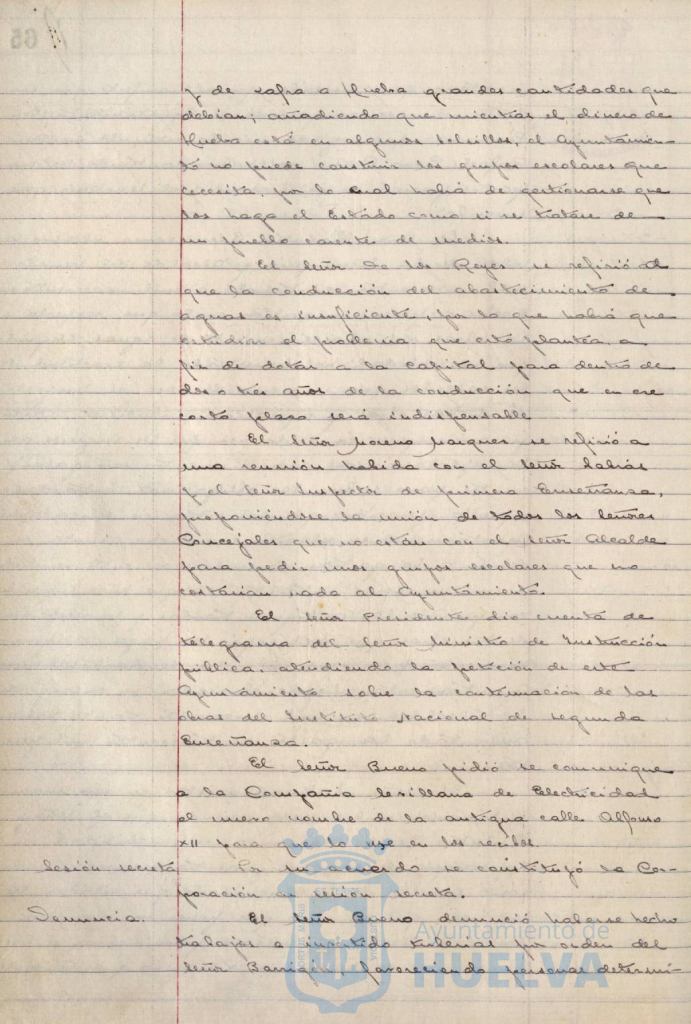 y de Zafra a Huelva grandes cantidades que
debían; añadiendo que mientras el dinero de
Huelva está en algunos bolsillos, el Ayuntamien-
to no puede construir los grupos escolares que
necesita, por lo cual habrá de gestionarse que
los haga el Estado como si se tratase de
un pueblo carente de medios.
El Señor de los Reyes se refirió al
que la conducción del abastecimiento de
aguas es insuficiente, por lo que habrá que
estudiar el problema que esto plantea, a
fin de dotar a la capital para dentro de
dos o tres años de la conducción que en ese
corto plazo será indispensable
El Señor Moreno Marquez se refirió a
una reunión habida con el Señor
y el Señor Inspector de primera Enseñanza,
proponiéndose la unión de todos los Señores
Concejales que no están con el Señor Alcalde
para pedir unos grupos escolares que no
costarían nada al Ayuntamiento.
El Señor Presidente dio cuenta de
telegrama del Señor Ministro de Instrucción
pública, atendiendo la petición de este
Ayuntamiento sobre la continuación de las
obras del Instituto Nacional de segunda
Enseñanza.
El Señor Bueno pidió se comunique
a la Compañia Sevillana de Electricidad
el nuevo nombre de la antigua calle Alfonso
XII para que lo use en los recibos.
Sesión secreta
Por su acuerdo se constituyó la Cor-
poración en sesión secreta.
Denuncia.
El Señor Bueno denunció haberse hecho
trabajos e invertido tuberias por orden del
Señor Barrigón, favoreciendo personas determi-
Ayuntamiento de
HUELVA